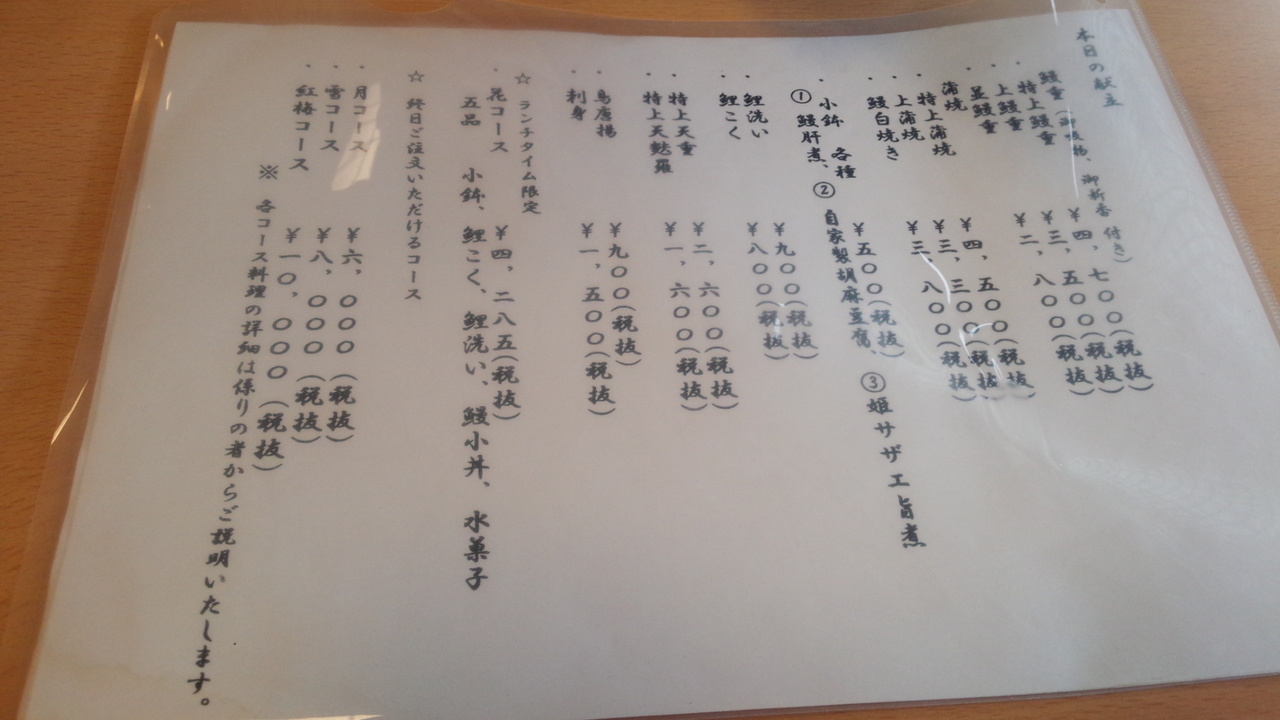 本日の献立
鰻重(御吸物、御新香付き)
・特上鰻重 ¥四、七〇〇(税抜)
・上鰻重 ¥三、五〇〇(税抜)
・並鰻重 ¥二、八〇〇(税抜)
蒲焼
・特上蒲焼 ¥四、五〇〇(税抜)
・上蒲焼 ¥三、三〇〇(税抜)
・鰻白焼き ¥三、八〇〇(税抜)
・小鉢 各種 ¥五〇〇(税抜)
①鰻肝煮、②自家製胡麻豆腐、③姫サザエ旨煮
・鯉洗い ¥九〇〇(税抜)
・鯉こく ¥八〇〇(税抜)
・特上天重 ¥二、六〇〇(税抜)
・特上天麩羅 ¥一、六〇〇(税抜)
・鳥唐揚 ¥九〇〇(税抜)
・刺身 ¥一、五〇〇(税抜)
☆ ランチタイム限定
・花コース ¥四、二八五(税抜)
五品 小鉢、鯉こく、鯉洗い、鰻小丼、水菓子
☆ 終日ご注文いただけるコース
・月コース ¥六、〇〇〇(税抜)
・雪コース ¥八、〇〇〇(税抜)
・紅梅コース ¥一〇、〇〇〇(税抜)
※ 各コース料理の詳細は係りの者からご説明いたします。